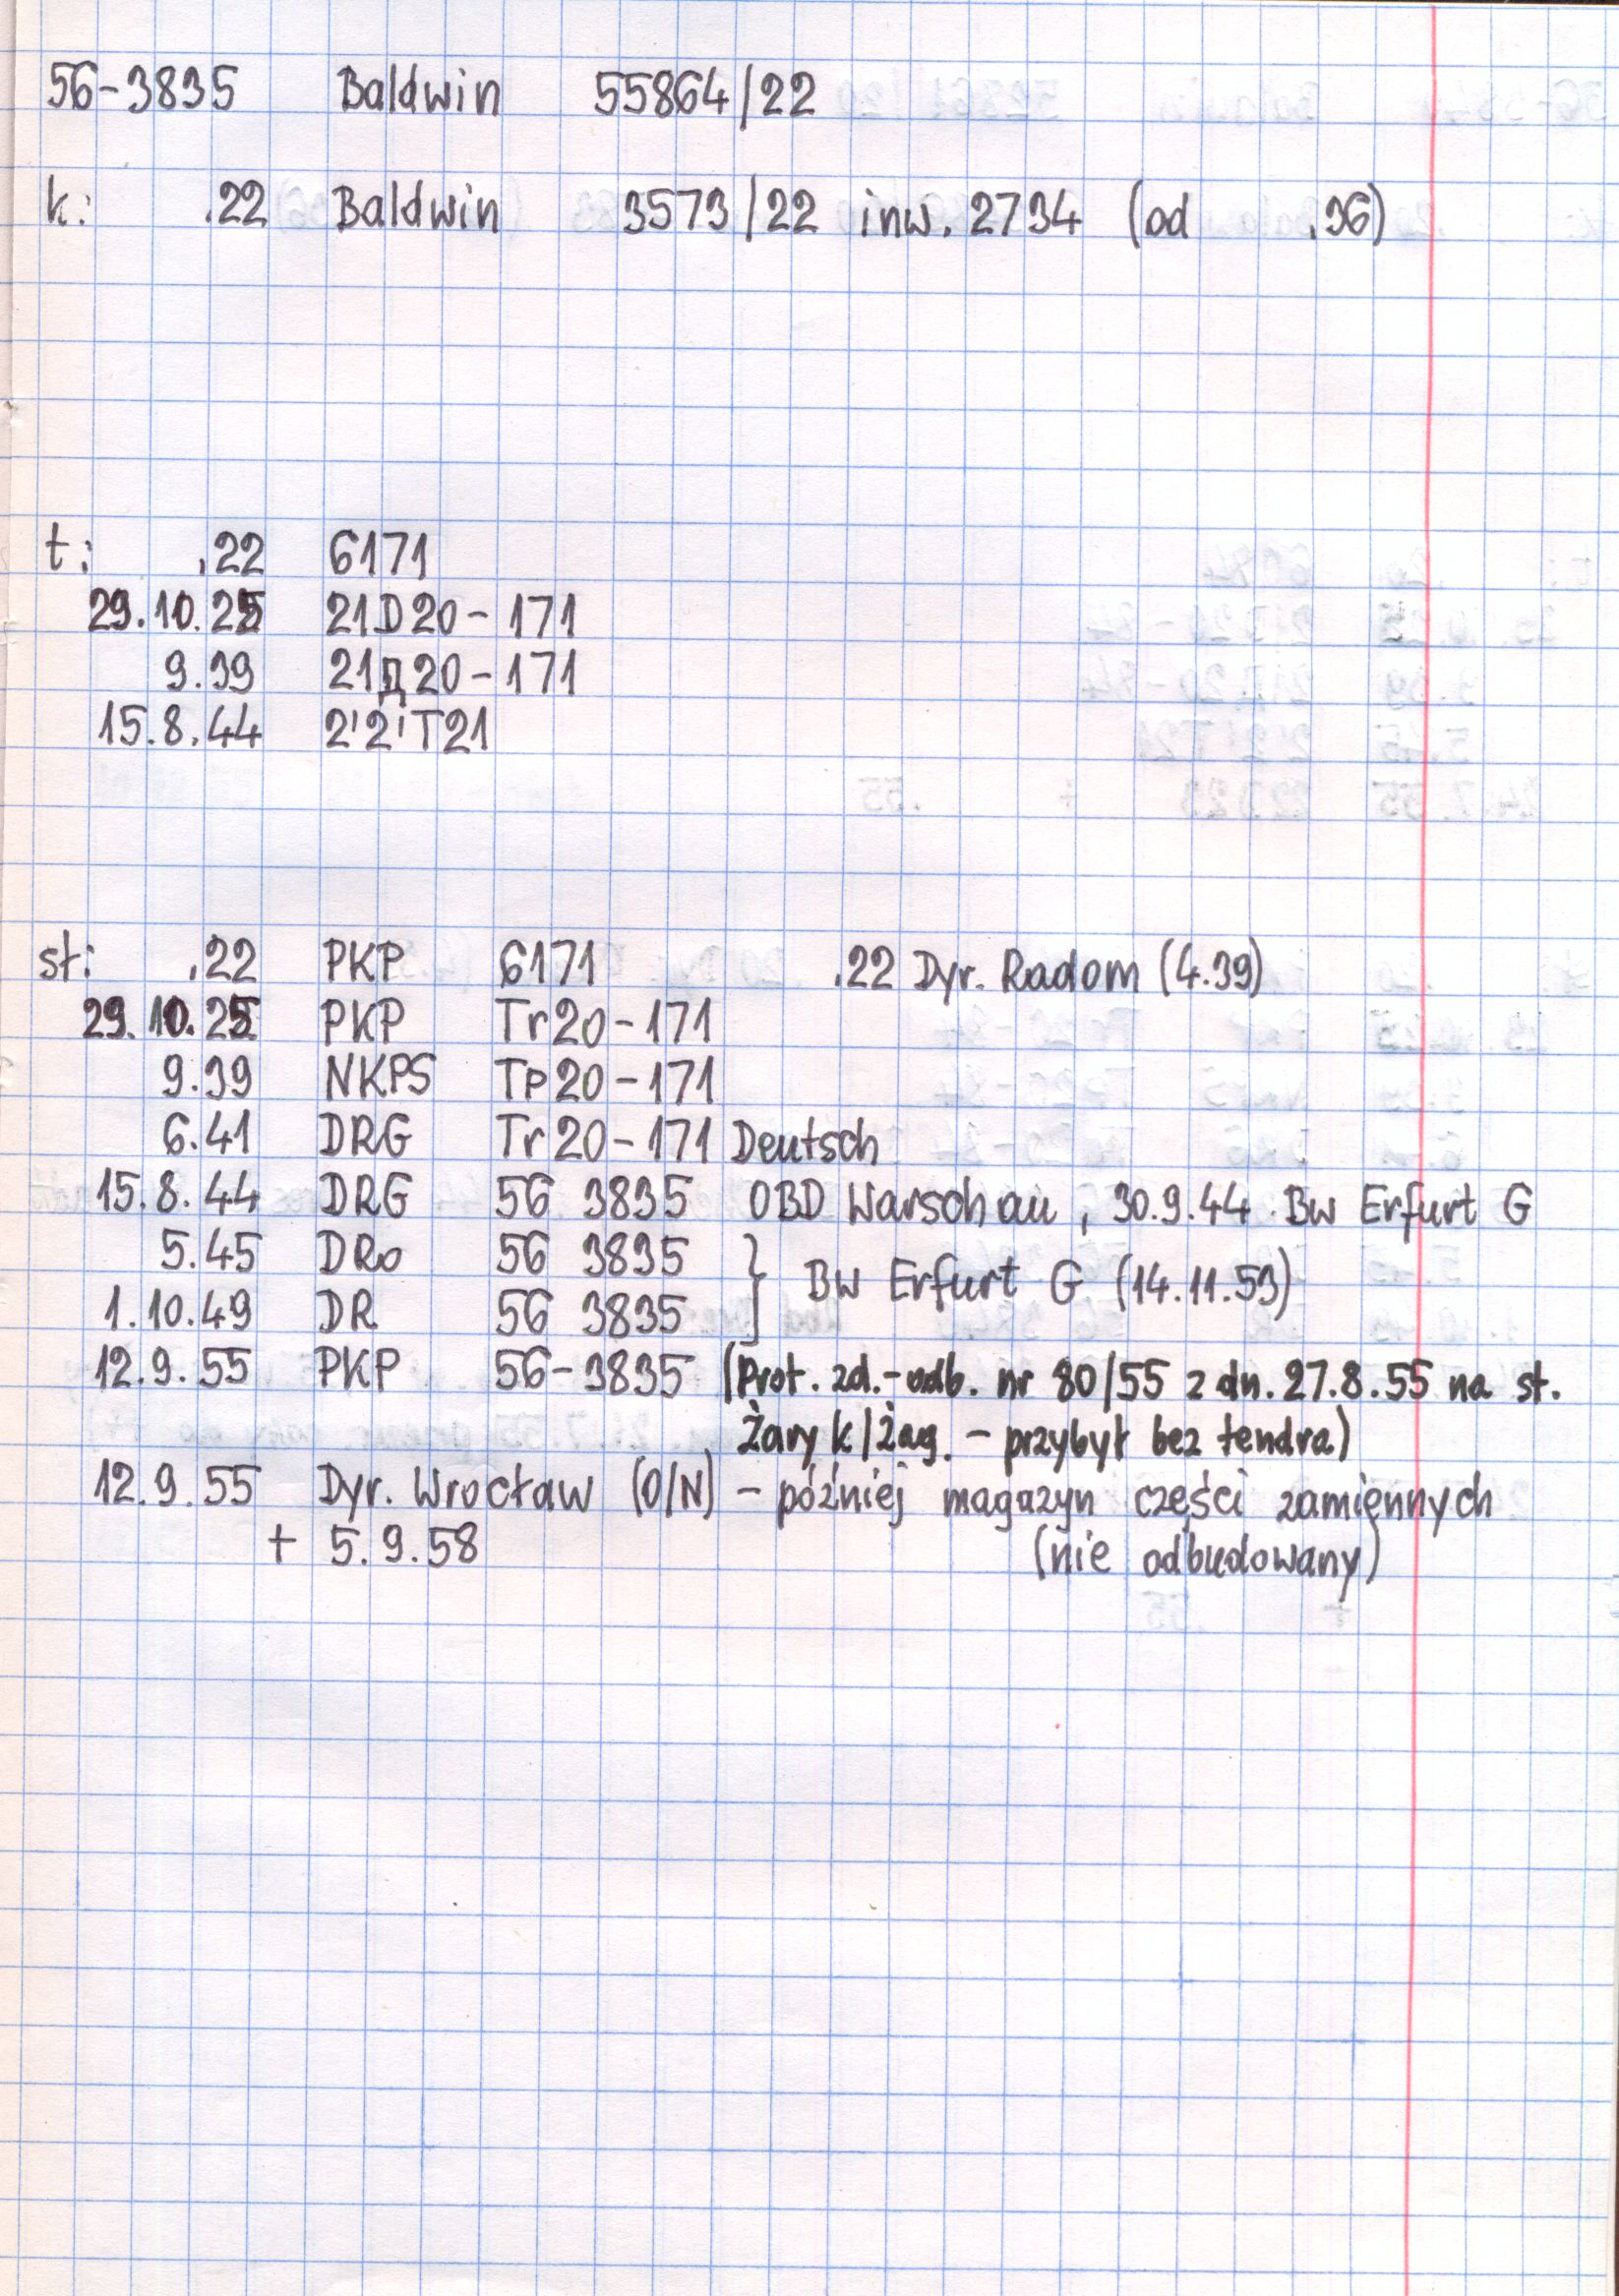 56-3835 Baldwin 55864/22
k: .22 Baldwin 3573/22 inw. 2734 (od .36)
t: .22 6171
29.10.25 21D20-171
9.39 21Д20-171
15.8.44 2'2'T21
st: .22 PKP 6171 .22 Dyr. Radom (4.39)
29.10.25 PKP Tr20-171
9.39 NKPS Tp20-171
6.41 DRG Tr20-171 Deutsch
15.8.44 DRG 56 3835 OBD Warschau, 30.9.44 Bw Erfurt G
5.45 DRo 56 3835
} Bw Erfurt G (14.11.53)
1.10.49 DR 56 3835
12.9.55 PKP 56-3835 (Prot. zd.-odb. nr 80/55 z dn. 27.8.55 na st.
Żary k/Żag. - przybył bez tendra)
12.9.55 Dyr. Wrocław (O/N) - później magazyn części zamiennych
+ 5.9.58 (nie odbudowany)